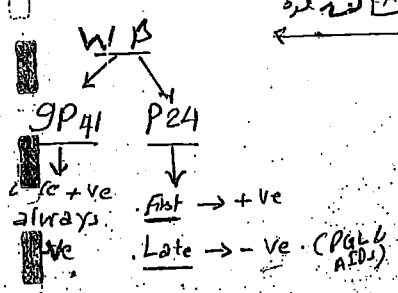 W B
gP41 P24
+ve
always. First → +ve
+ve . Late → - ve . (PGLL
AIDs)